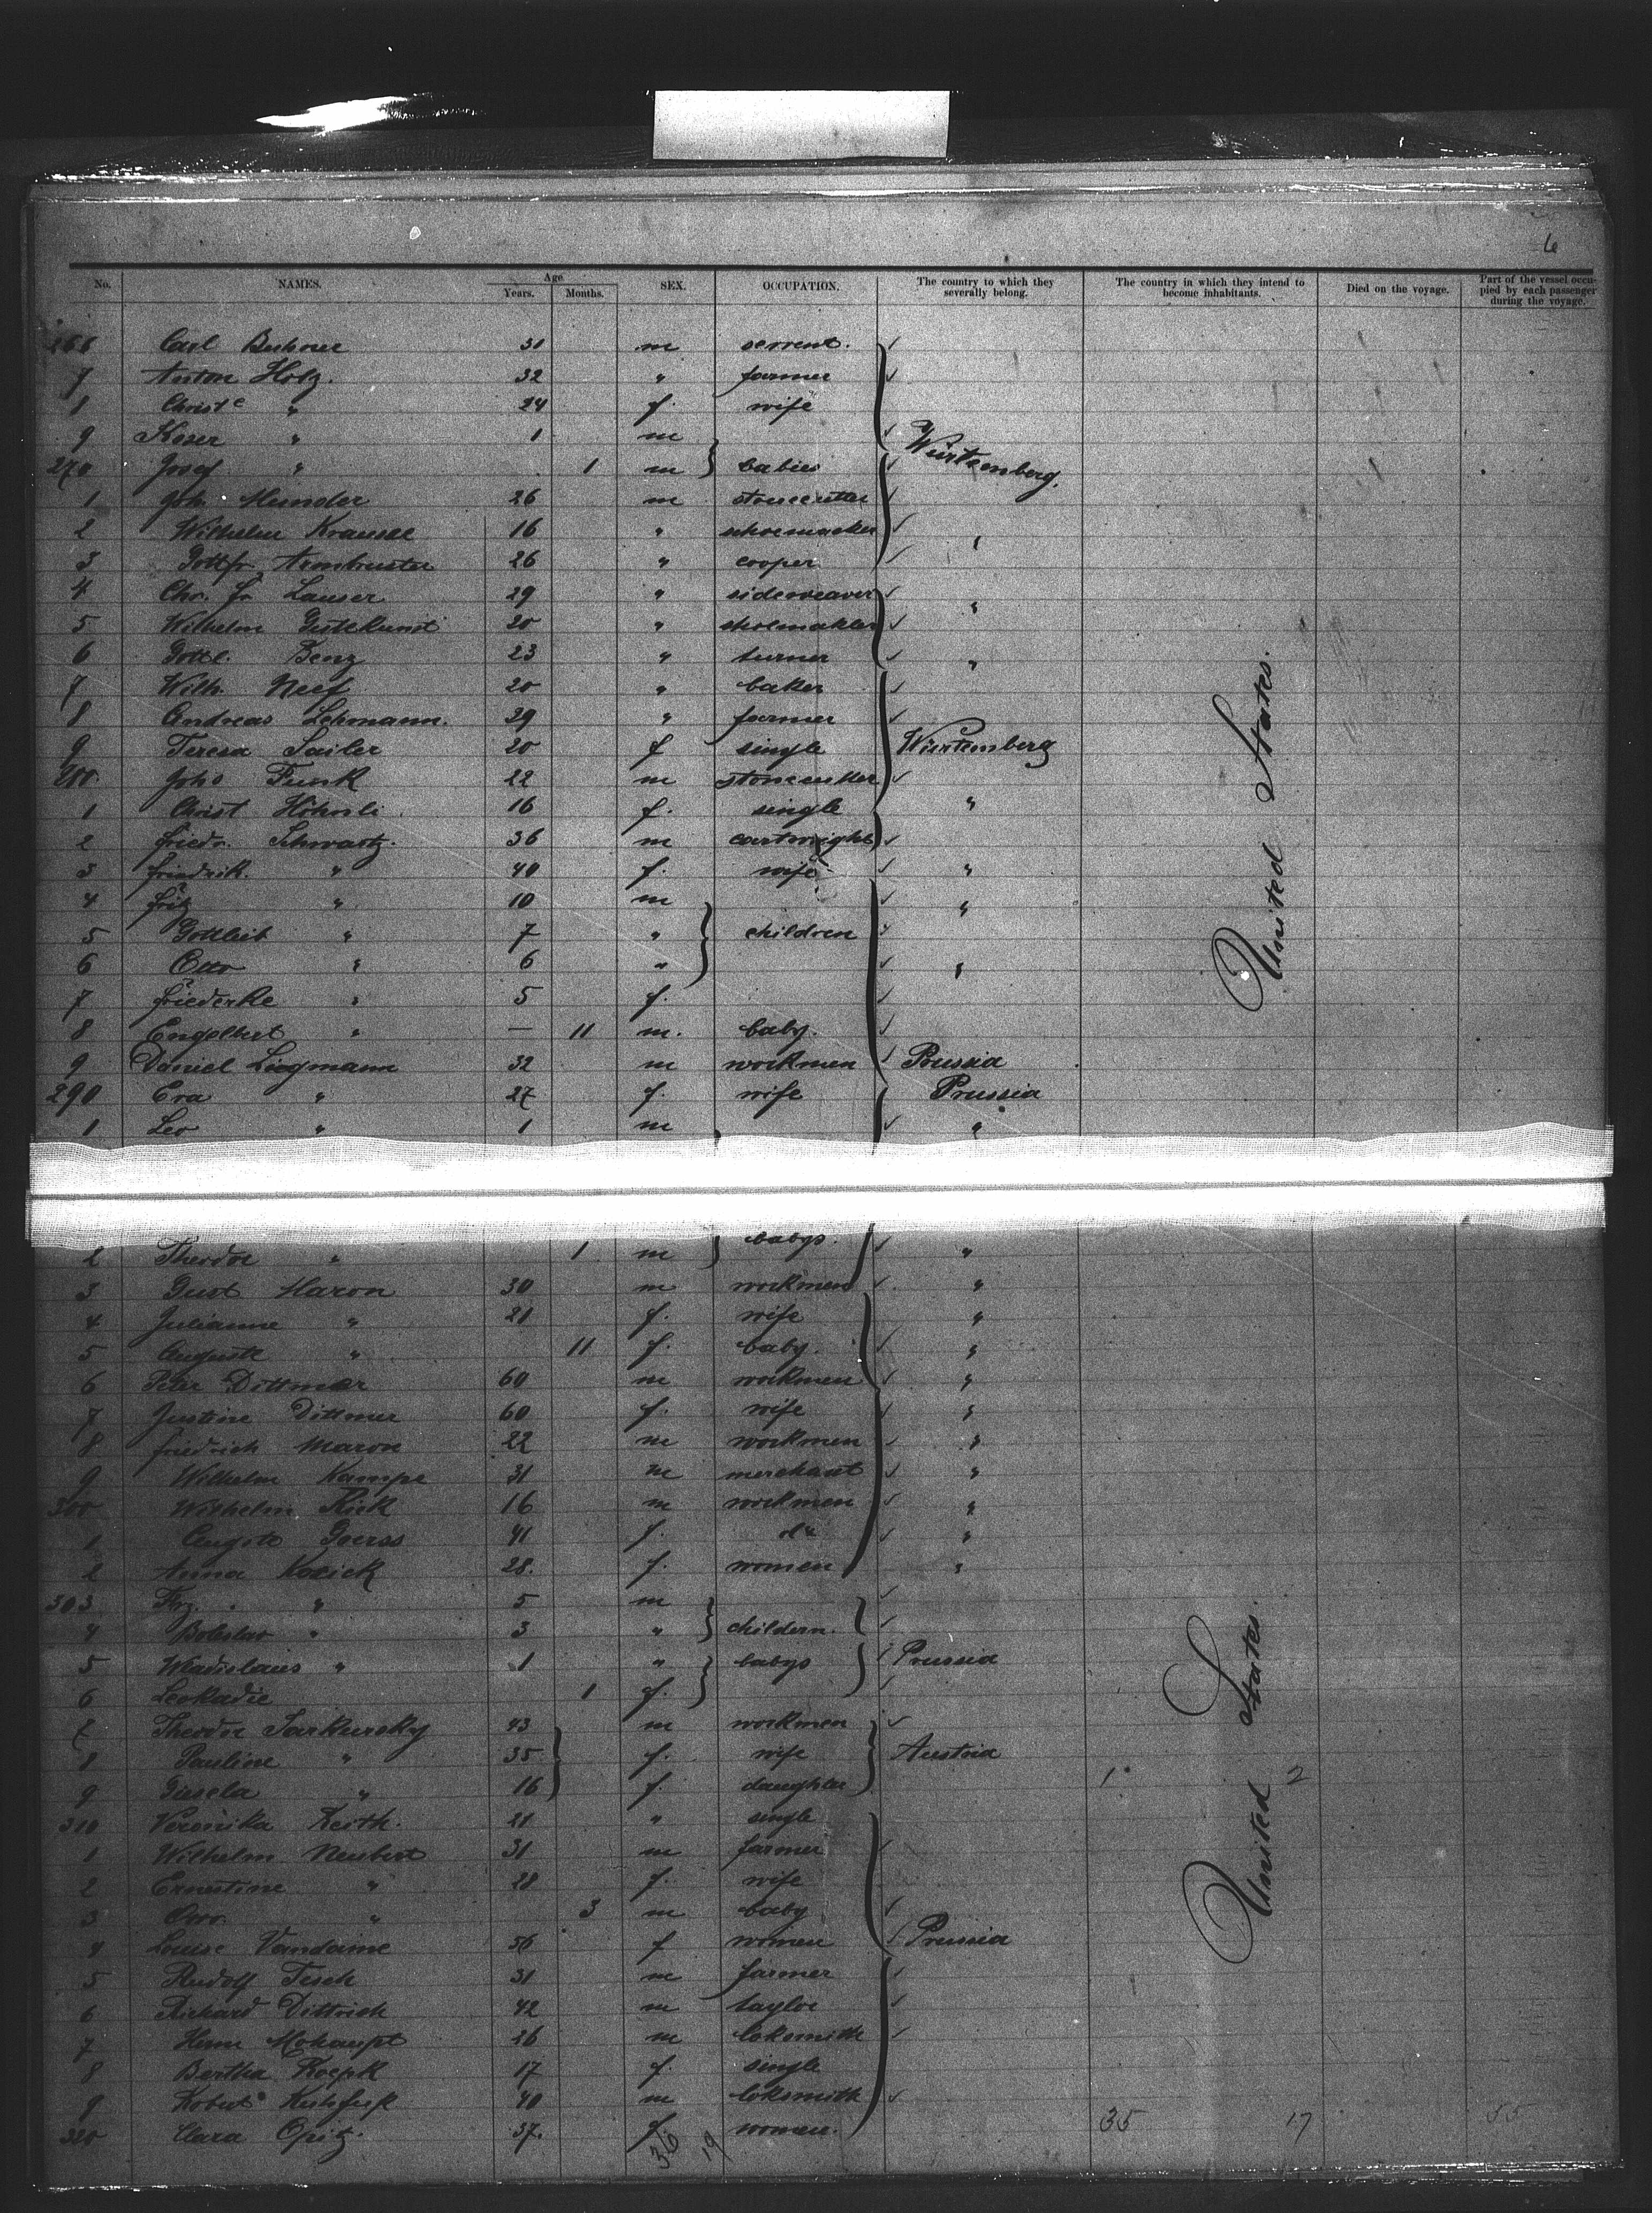 6
No. NAMES. Age Years. Months. SEX. OCCUPATION. The country to which they severally belong. The country in which they intend to become inhabitants. Died on the voyage. Part of the vessel occupied by each passenger during the voyage.
266 Carl 31 m servent.
7 Anton Holz. 32 " farmer
8 Christe " 24 f. wife
9 " 1 m
Würtemberg.
270 Josef " 1 m babies
1 Joh. Munder 26 m stonecutter
2 Wilhelm Krausse 16 " schoemacker "
3 Gottfr. Armbruster 26 " cooper
4 Chr. Fr. Lauser 29 " "
5 Wilhelm Gutekunst 20 " shoemakler
6 Gottl. Benz 23 " turner "
7 Wilh. Neef 20 " baker
8 Andreas Lehmann. 29 " farmer
9 Teresa Sailer 20 f single Würtemberg
280. Johs Funk 22 m stonecutter
1 Christ 16 f. single "
2 Friedr. Schwartz. 36 m cartwright
3 Friedrik. " 40 f. wife "
4 Fritz " 10 m "
5 Gottlieb " 7 " children
6 Otto " 6 " "
7 Friederke " 5 f.
8 Engelbert " — 11 m. baby.
9 Daniel Liegmann 32 m workmen Prussia
290 Eva " 27 f. wife Prussia
1 Leo " 1 m "
United States.
2 Theodor " 1 m babys. "
3 Gust Maron 30 m workmen "
4 Julianne " 21 f. wife "
5 Auguste " 11 f. baby. "
6 Peter Dittmer 60 m workmen "
7 Justine Dittmer 60 f. wife "
8 Friedrich Maron 22 m workmen "
9 Wilhelm Kampe 31 m merchant "
300 Wilhelm Rick 16 m workmen "
1 Augste Goerss 41 f. do "
2 Anna Kosick 28. f. women "
303 Frz. " 5 m
4 Boleslav " 3 " childern.
5 Wladislaus " 1 " babys Prussia
6 Leokadie 1 f.
7 Theodor 43 m workmen
8 Pauline " 35 f. wife Austria
9 Gisela " 16 f. daughter 1 2
310 Veronika Keith. 21 " single
1 Wilhelm Neubert 31 m farmer
2 Ernestine " 28 f. wife
3 Otto " 3 m baby
4 Louise Vandaine 56 f women Prussia
5 Rudolf Tesch 31 m farmer
6 Richard Dittrich 42 m taylor
7 Herm Mohaupt 26 m loksmith
8 Bertha Koepk 17 f. single
9 Robert 40 m loksmith
320 Clara Opitz. 37. f women.
United States.
36 19 35 17 55